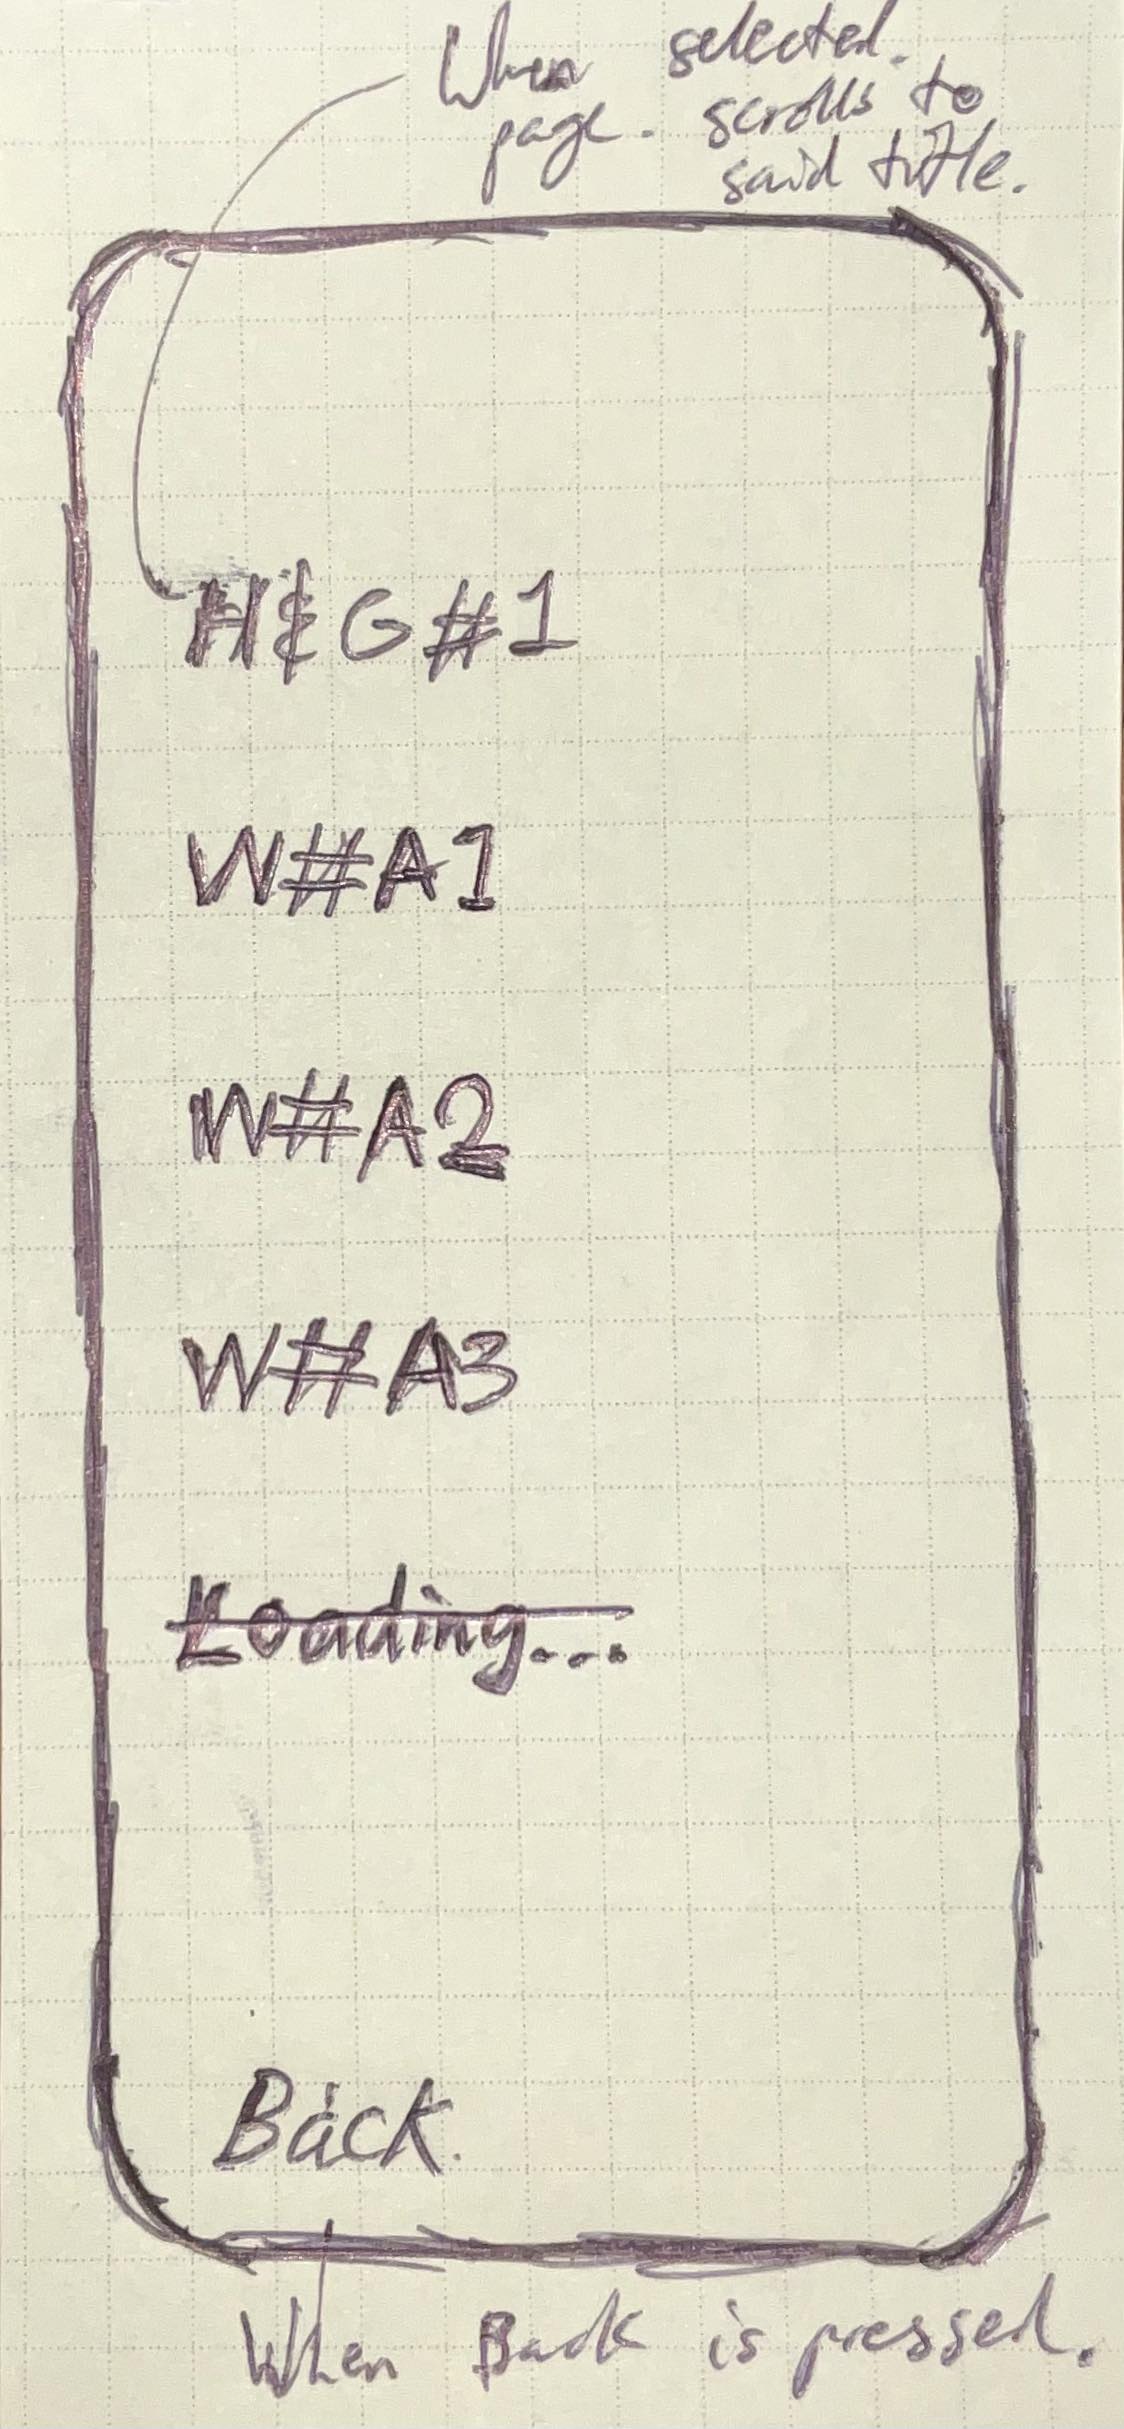 When selected.
page. scrolls to
said title.
H&G#1
W#A1
W#A2
W#A3
Loading...
Back.
When Back is pressed.